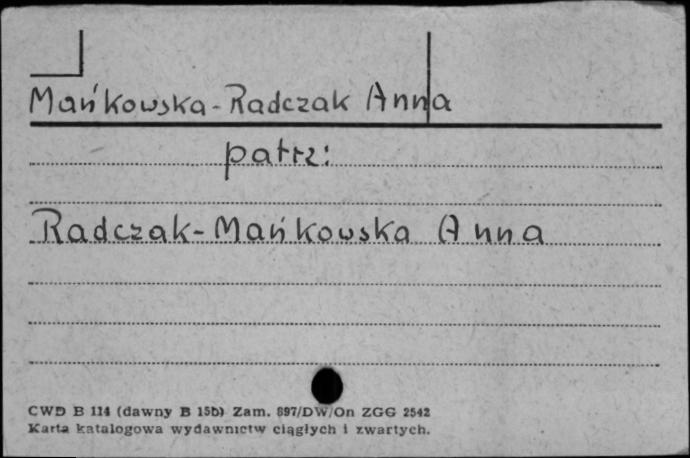 Mańkowska-Radczak Anna
patrz:
Radczak-Mańkowska Anna
CWD B 114 (dawny B 15b) Zam. 897/DW/On ZGG 2542
Karta katalogowa wydawnictw ciągłych i zwartych.